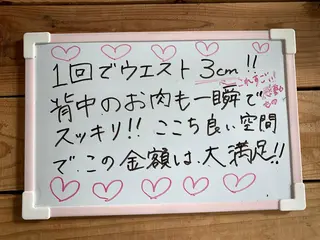 1回でウエスト3cm!!
背中のお肉も一瞬で
スッキリ!! ここち良い空間
で、この金額は、大満足!!